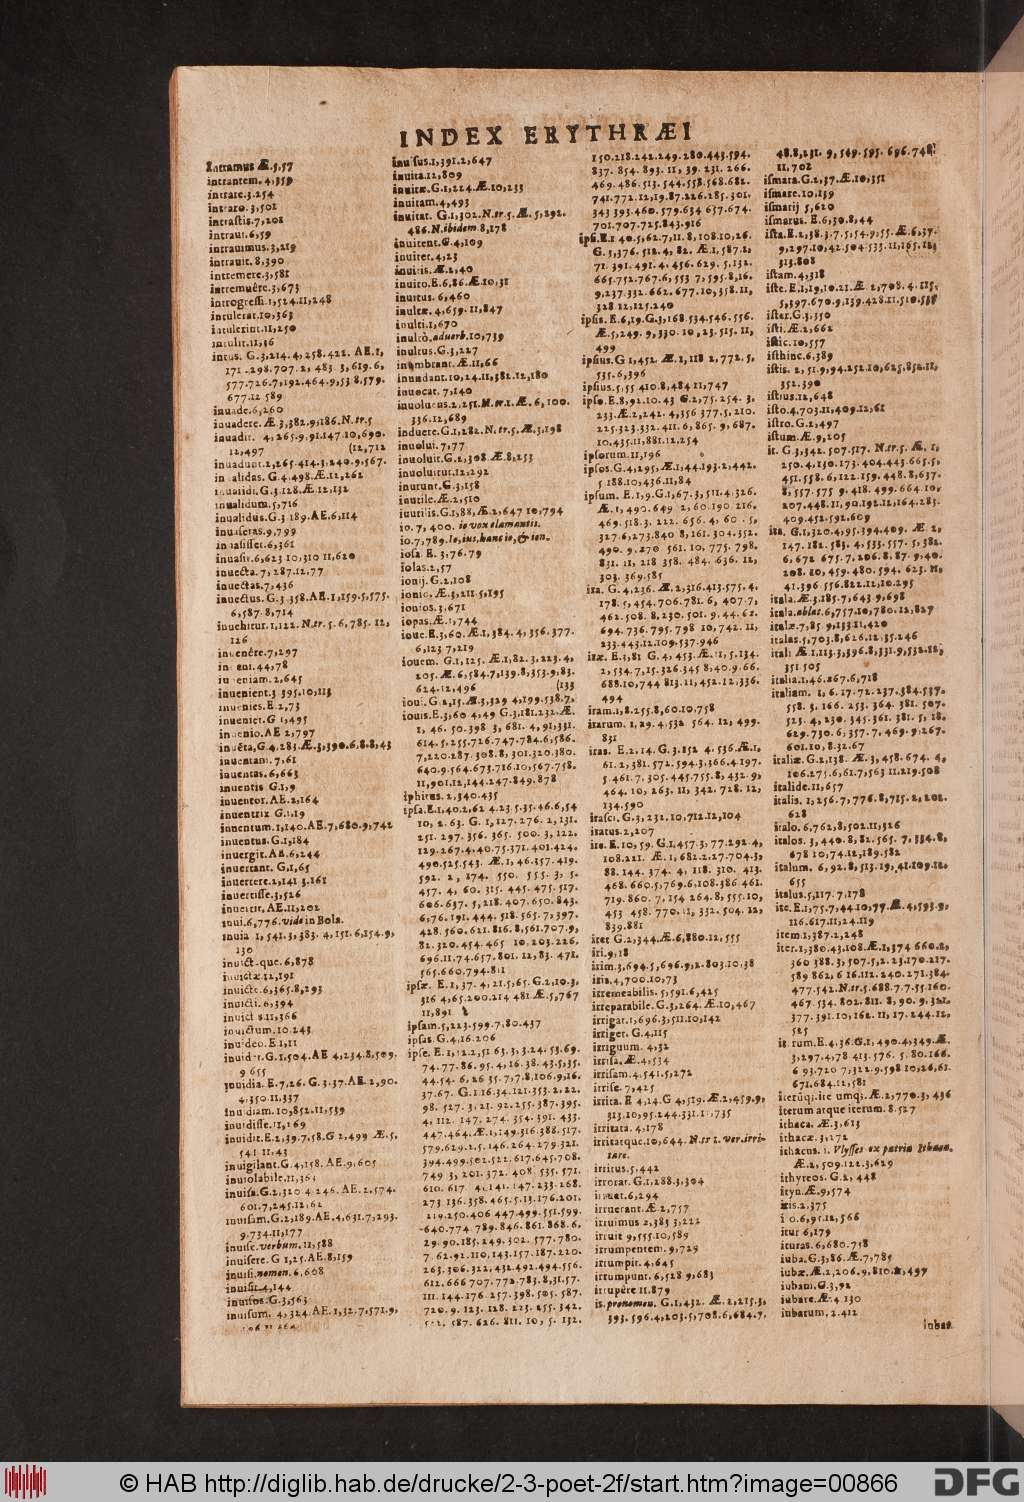 INDEX ERYTHRÆI
Intramus Æ.5,57
intrantem.4,359
intrare.3.254
intraro.3,501
intrastis.7,201
intraui.6,59
intrauimus.3,219
intrauit.8,390
intremere.3,581
intremuêre.3,673
introgressi.1,524.11,248
intulerat.10,363
intulerint.11,250
intulit.11,36
intus. G.3,214.4,258.422. AE.1,
171.298.707.2, 483.3,619.6,
577.726.7,192.464.9,538.579.
677.12 589
inuade.6,260
inuadere. Æ.3,382.9,186.N.tr.5
inuadit. 4,265.9.91.147.10,690.
12,497 (12,712
inuadunt.2,265.414.3,240.9,567.
inualidas. G.4.498.Æ.12,262
inualidi.G.3.128.Æ.12,132
inualidum.5,716
inualidus.G.3.189.AE.6,114
inuaseras.9,799
inuasisset.6,361
inuasit.6,623 10,310 11,620
inuecta.7,287.12.77
inuectas.7,436
inuectus.G.3.358.AE.1,159.5,575.
6,587.8,714
inuehitur.1,122.N.tr.5.6,785.12,
126
inuenêre.7,297
inueni.44,78
inueniam.2,645
inuenient.3.395.10,113
inuenies.E.2,73
inueniet.G 1,495
inuenio.AE 2,797
inuēta,G.4.283.Æ.3,390.6.8.8,43
inuentam.7,61
inuentas.6,663
inuentis G.1,9
inuentor.AE.2,164
inuentrix G.1.19
inuentum.1,140.AE.7,680.9,742
inuentus.G.1,184
inuergit.AE.6,244
inuertant. G.1,65
inuertere.2,141 3.161
inuertisse.3,526
inuertit, AE.11,202
inui.6,776.vide in Bola.
inuia 1,541.3,383.4,151.6,154.9,
130
inuictque.6,878
inuictæ.12,191
inuicte.6,365.8,293
inuicti.6,394
inuict 8.11,366
inuictum.10.243
inuideo.E.1,11
inuidet.G.1,504.AE 4,234.8,509.
9 655
inuidia. E.7,26. G.3.37.AE.2,90.
4.350 11.337
inuidiam.10,852.11,539
inuidisse.11,169
inuidit.E.2,39.7,58.G 2,499 Æ.5,
541 11.43
inuigilant.G.4,158. AE.9,605
inuiolabile.11,363
inuisa.G.2,320 4 246. AE.2,574.
601.7,245.12.62
inuisam.G.2,189.AE.4,631.7,293.
9.734.11,177
inuise.verbum.11,588
inuisere.G 1,25.AE.8,159
inuisi.nomen.6.608
inuisit.4,144
inuisos.G.3,563
inuisum. 4,324.AE.1,32.7,571.9,
inuisus.1,391.2,647
inuita.12,809
inuitæ.G.1,224.Æ.10,233
inuitam.4,493
inuitat. G.1,302.N.tr.5.Æ.5,292.
486.N.ibidem 8,178
inuitent.G.4,109
inuitet.4,23
inuitis.Æ.2,40
inuito.E.6,86.Æ.10,31
inuitus.6,460
inultæ.4,659.11,847
inulti.1,670
inultò.aduerb.10,739
inultus.G.3,227
inumbrant.Æ.11,66
inundant.10,24.11,382.12,280
inuocat.7,140
inuolucus.2,251.N.tr.1.Æ.6,100.
336.12,689
induere.G.1,282.N.tr.5,Æ.3,198
inuolui.7,77
inuoluit.G.2,308.Æ.8,253
inuoluitur.12,292
inurunt.G.3,158
inutile.Æ.2,510
inutilis.G.1,88,Æ.2,647 10,794
io.7,400. io vox clamantis.
io.7,789.Io,ius,hanc io,&ion.
iola E.3,76.79
iolas.2,57
ionij.G.2,108
ionio.Æ.3,211.5,195
ionios.3,671
iopas.Æ.1,744
ioue.E.3,60.Æ.1,384.4,356.377.
6,123 7,219
iouem. G.1,125. Æ.1,82.3,223.4,
205.Æ.6,584.7,139.8,353.9,83.
624.12,496 (133
ioui.G.2,15.Æ.3,329 4,199.538.7,
iouis.E.3,60 4,49 G.3,181.232.Æ.
1,46.50.398 3,681.4,91,331.
614.5,255.726.747.784.6,586.
7,220.287.308.8,301.320.380.
640.9,564.673.716.10,567.758.
11,901.12,144.247.849.878
iphitus.2,340.435
ipsa.E.1,40.2,62 4.23.5.35.46.6,54
10,2.63. G. 1,127.276.2,131.
251.297.356.365.500.3,122.
129.267.4,40.75.371.401.424.
490.525.543. Æ.1,46.357.419.
592.2,174.550.555.3,5.
457.4,60.315.445.475.517.
606.637.5,218.407.650.843.
6,76.191.444.518.565.7,397.
428.560.621.816.8,561.707.9,
82.320.454.465 10.203.226.
696.11.74.657.801.12,83.471.
565.660.794.811
ipsæ.E.1,37.4,21.5,65.G.2,10.3,
316 4,65.200.214 481 Æ.5,767
11,891
ipsam.5,223.599.7,80.437
ipsas.G.4,16.206
ipse.E.1,12.2,51 63.3,3.24.53.69.
74.77.86.95.4,16.38.43.5,35.
44.54.6,26 35.7,7.8,106.9,16.
37.67.G.1.16.34.121.353.2,22.
98.527.3,21.92.255.387.395.
4,112.147.274.354.391.433.
447.464.Æ.1,149.316.388.517.
579.629.2,5.146.264.279.321.
394.499.502.522.617.645.708.
749 3,201.372.408.535.571.
610.617 4,141.147.233.268.
273.136.358.465.5.13.176.201.
219.250.406 447.499.551.599.
640.774.789.846.861.868.6,
29.90.185.249.302.577.780.
7,62.92.110,143.157.187.220.
263.306.322,432.492.494.556.
612.666 707.772.783.8,31.57.
111.144.176.257.398.505.587.
720.9.123.128.223.255.342.
587.626.811.10,5.132.
150.218.242.249.280.443.594.
837.854.893.11,39.231.266.
469.486.513.544.558.568.682.
741.772.12,19.87.226.285.301.
343 393.460.579.634 637.674.
701.707.725.843.916
ipsi.E.1 40.5,62.7,11.8,108.10,26.
G.3,376.512.4,82.Æ.1,587.2,
71.391.491.4.456.629.5,132.
665.752.767.6,553 7,595.8,16.
9,237.332.662.677.10,358.11,
328 12,125.240
ipsis.E.6,19.G.3,168.534.546.556.
Æ.5,249.9,330.10,23.515.11,
499
ipsius.G 1,452.Æ.1,118 2,772.5,
535.6,396
ipsius.5,55 410.8,484 11,747
ipso.E.8,92.10.43 G.2,75.254.3,
233.Æ.2,242.4,356 377.5,210.
225.323.332.411.6,865.9,687.
10,435.11,881.12.254
ipsorum.11,196
ipsos.G.4,295,Æ.1,44.193.2,442.
5 188.10,436.11,84
ipsum. E.1,9.G.1,67.3,511.4,326.
Æ.1,490.649 2,60.190.216.
469.518.3.222.656.4,60.5,
327.6,273.840 8,161.304.352.
490.9.270 561.10,775.798.
831.11,218 358.484.636.12,
303.369.585
ira. G.4,236.Æ.2,316.413.575.4,
178.5,454.706.781.6,407.7,
462.508.8,230.501.9.44.62.
694.736.795.798 10,742.11,
233.443.12.109.537.946
iræ.E.3,81 G.4,453.Æ.11,5.134.
2,534.7,15.326.345 8,40.9.66.
688.10,744 813.11,452.12,336.
494
iram.1,8.255.8,60.10.758
irarum.1,29.4,532 564.12,499.
831
iras. E.2,14.G.3.152 4.536.Æ.1,
61.2,381.572.594.3,366.4.197.
5.461.7,305.445.755.8,432.9,
464.10,263.11,342.728.12,
134.590
irasci.G.3,232.10,712.12,104
iratus.2,207
ire.E.10,59.G.1,457.3,77.292.4,
108.221.Æ.1,682.2.27.704.3,
88.144.374.4,118.310.413.
468.660.5,769.6,108.386 461.
719.860.7,154 264.8,555.10,
453 458.770.11,332.504.12,
839.881
iret G.2,344.Æ.6,880.12,555
iri.9,18
irim.3,694.5,696.9,2.803.10.38
iris.4,700.10,73
irremeabilis.5,591.6,425
irreparabile.G.3,264.Æ.10,467
irrigat.1,696.3,511.10,142
irriget.G.4,115
irriguum.4,32
irrisa.Æ.4,534
irrisam.4.541.5,272
irrise.7,425
irrita.E 4,14.G 4,519.Æ.2,459.9,
313.10,95.244.331.11,735
irritata.4,178
irritatque.10,644.N.tr 2.ver.irri-
tare.
irritus.5,442
irrorat.G.1,288.3,304
irruerant.Æ.2,757
irruimus 2,383 3,222
irruit 9,555.10,589
irrumpentem.9,729
irrumpit.4,645
irrumpunt.6,528 9,683
irrupêre 11.879
is.pronomen.G.1,432.Æ.2,215.3,
393.596.4,203.5,708.6,684.7,
48.8,231.9,549.595.696.748.
11,702
ismara.G.2,37.Æ.10,351
ismare.10,139
ismarij 5,620
ismarus.E.6,30.8,44
ista.E.2,38.3.7,5,54.9,55.Æ.6,37.
9,297.10,42.504 535.11,165.12,
313.808
istam.4,318
iste.E.1,19,10.21.Æ 2,708.4.115.
5,397.670.9,139.428.11.510.537
ister.G.3.350
isti.Æ.2,662
istic.10,557
isthinc.6.389
istis. 2,51.9,94.252.10,625,852.11,
352.390
istius.12,648
isto.4,703.11,409.12,61
istro.G.2,497
istum.Æ.9,205
it.G.3,342.507.517.N.tr.5.Æ.1,
250.4,130.173.404.443.665.5,
451.558.6,122.159.448.8,637.
8,557.575 9.418.499.664.10,
207.448.11,90.192.12,164.283.
409.452.592.609
ita. G.1,320.4,95.394.409.Æ 2,
147.182.583.4,533.557.5,382.
6,672 675.7,206.8.87.9,40.
208.10,459.480.594.623.11,
41.396.556.822.12,10.295
itala.Æ.3,185.7,643 9,698
itala.ablat.6,757.10,780.12,827
italæ.7,85 9,133.11,420
italas.5,703.8,626.12.35.246
itali Æ.1,113.3,396.8,331.9,532.12,
351 505
italia.1,46.267.6,718
italiam. 1,6.17.72.237.384.537.
558.3,166.253.364.381.507.
523.4,230.345.361.381.5,18.
629.730.6,357.7,469.9,267.
601.10,8.32.67
italiæ.G.2,138.Æ.3,458.674.4,
106.275.6,61.7,563 11.219.508
italide.11,657
italis.1,256.7,776.8,715.2,202.
628
italo.6,762,8,502.11,326
italos.3,440.8,82.565.7,334.8,
678 10,74.12,189.582
italum.6,92.8,513.19,41.109.12,
655
italus.5,117.7,178
ite.E.1,75.7,44.10,77.Æ.4,593.9,
116.617.11,24.119
item.1,387.2,248
iter.1,380.43.108.Æ.1,374 660.2,
360 388.3,507.5,2.23.170.217.
589 862,6 16.112.240.271.384.
477.542.N.tr.5.688.7,7.55.160.
467 534.802.811.8,90.9,321.
377.391.10,162.11,17.244.12,
525
iterum.E.4,36.G.1,490.4,349.Æ.
3,297.4,78 413.576.5.80.166.
6 93.720 7,322.9,598 10,26,61.
671.684.12,581
iterūq;.ite umq;.Æ.2,770.3,436
iterum atque iterum.8.527
ithaca.Æ.3,613
ithacæ.3,272
ithacus.1.Vlysses ex patria Ithaca.
Æ.2,509.122.3,629
ithyreos.G.2,448
ityn.Æ.9,574
itis.2,375
ito.6,95.12,566
itur 6,179
ituras.6,680.758
iuba.G.3,86.Æ.7,785
iubæ.Æ.2,206.9,810.2,497
iubam.G.3,92
iubare.Æ.4 130
iubarum.2.412
Iubas
© HAB http://diglib.hab.de/drucke/2-3-poet-2f/start.htm?image=00866
DFG